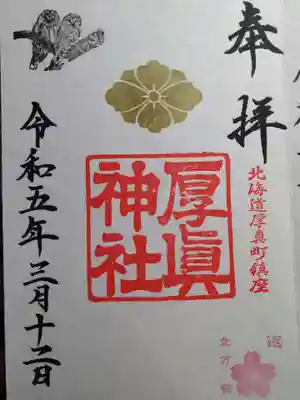 奉拝
北海道厚真町鎮座
厚眞
神社
令和五年三月十二日